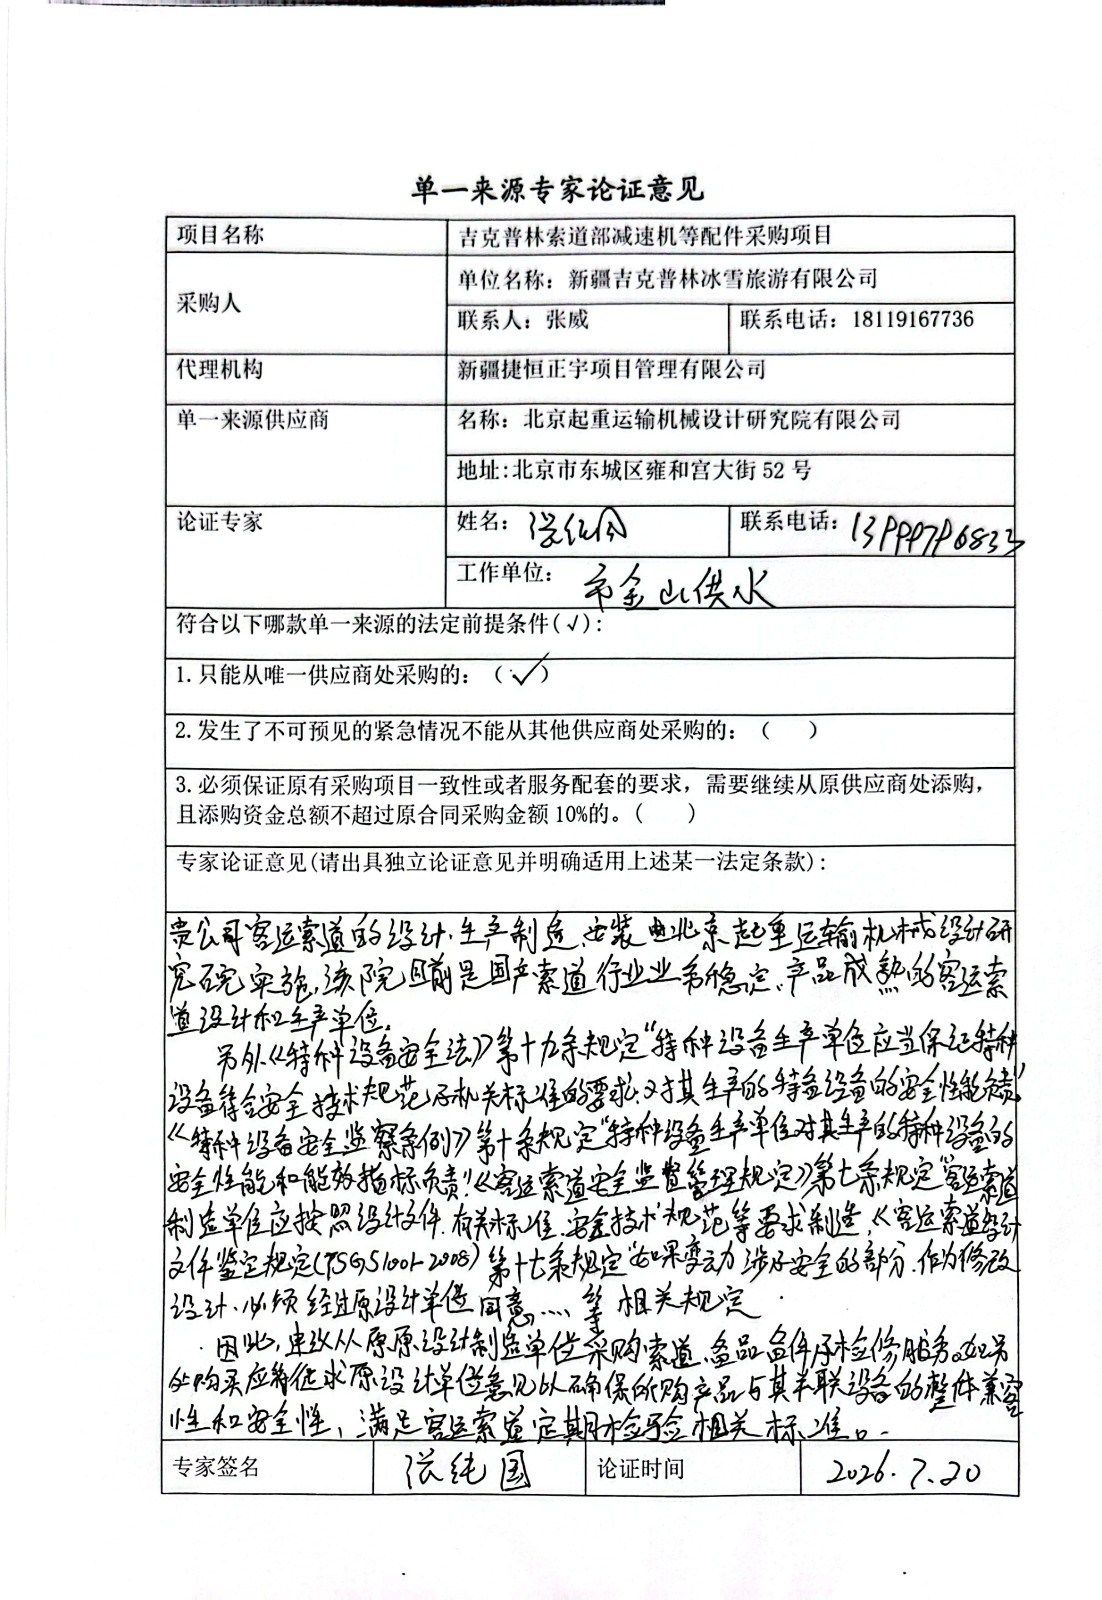 单一来源专家论证意见
项目名称 吉克普林索道部减速机等配件采购项目
采购人 单位名称：新疆吉克普林冰雪旅游有限公司
联系人：张威 联系电话：18119167736
代理机构 新疆捷恒正宇项目管理有限公司
单一来源供应商 名称：北京起重运输机械设计研究院有限公司
地址:北京市东城区雍和宫大街52号
论证专家 姓名：张纯国 联系电话：13999796833
工作单位：市金山供水
符合以下哪款单一来源的法定前提条件(√):
1.只能从唯一供应商处采购的：（√）
2.发生了不可预见的紧急情况不能从其他供应商处采购的：（ ）
3.必须保证原有采购项目一致性或者服务配套的要求，需要继续从原供应商处添购，
且添购资金总额不超过原合同采购金额10%的。（ ）
专家论证意见(请出具独立论证意见并明确适用上述某一法定条款):
贵公司客运索道的设计、生产制造、安装由北京起重运输机械设计研
究院实施，该院目前是国产索道行业业务稳定、产品成熟的客运索
道设计和生产单位。
另外《特种设备安全法》第十九条规定"特种设备生产单位应当保证特种
设备符合安全技术规范及相关标准的要求，对其生产的特备设备的安全性能负责"
《特种设备安全监察条例》第十条规定"特种设备生产单位对其生产的特种设备的
安全性能和能效指标负责"《客运索道安全监督管理规定》第七条规定"客运索道
制造单位应按照设计文件、有关标准、安全技术规范等要求制造，《客运索道设计
文件鉴定规定(TSGS1001-2008)第十七条规定"如果变动涉及安全的部分、作为修改
设计、必须经过原设计单位同意....等相关规定
因此，建议从原原设计制造单位采购索道、备品备件及检修服务。如另
处购买应将征求原设计单位意见以确保所购产品与其关联设备的整体兼容
性和安全性，满足客运索道定期检验相关标准。
专家签名 张纯国 论证时间 2026.7.20